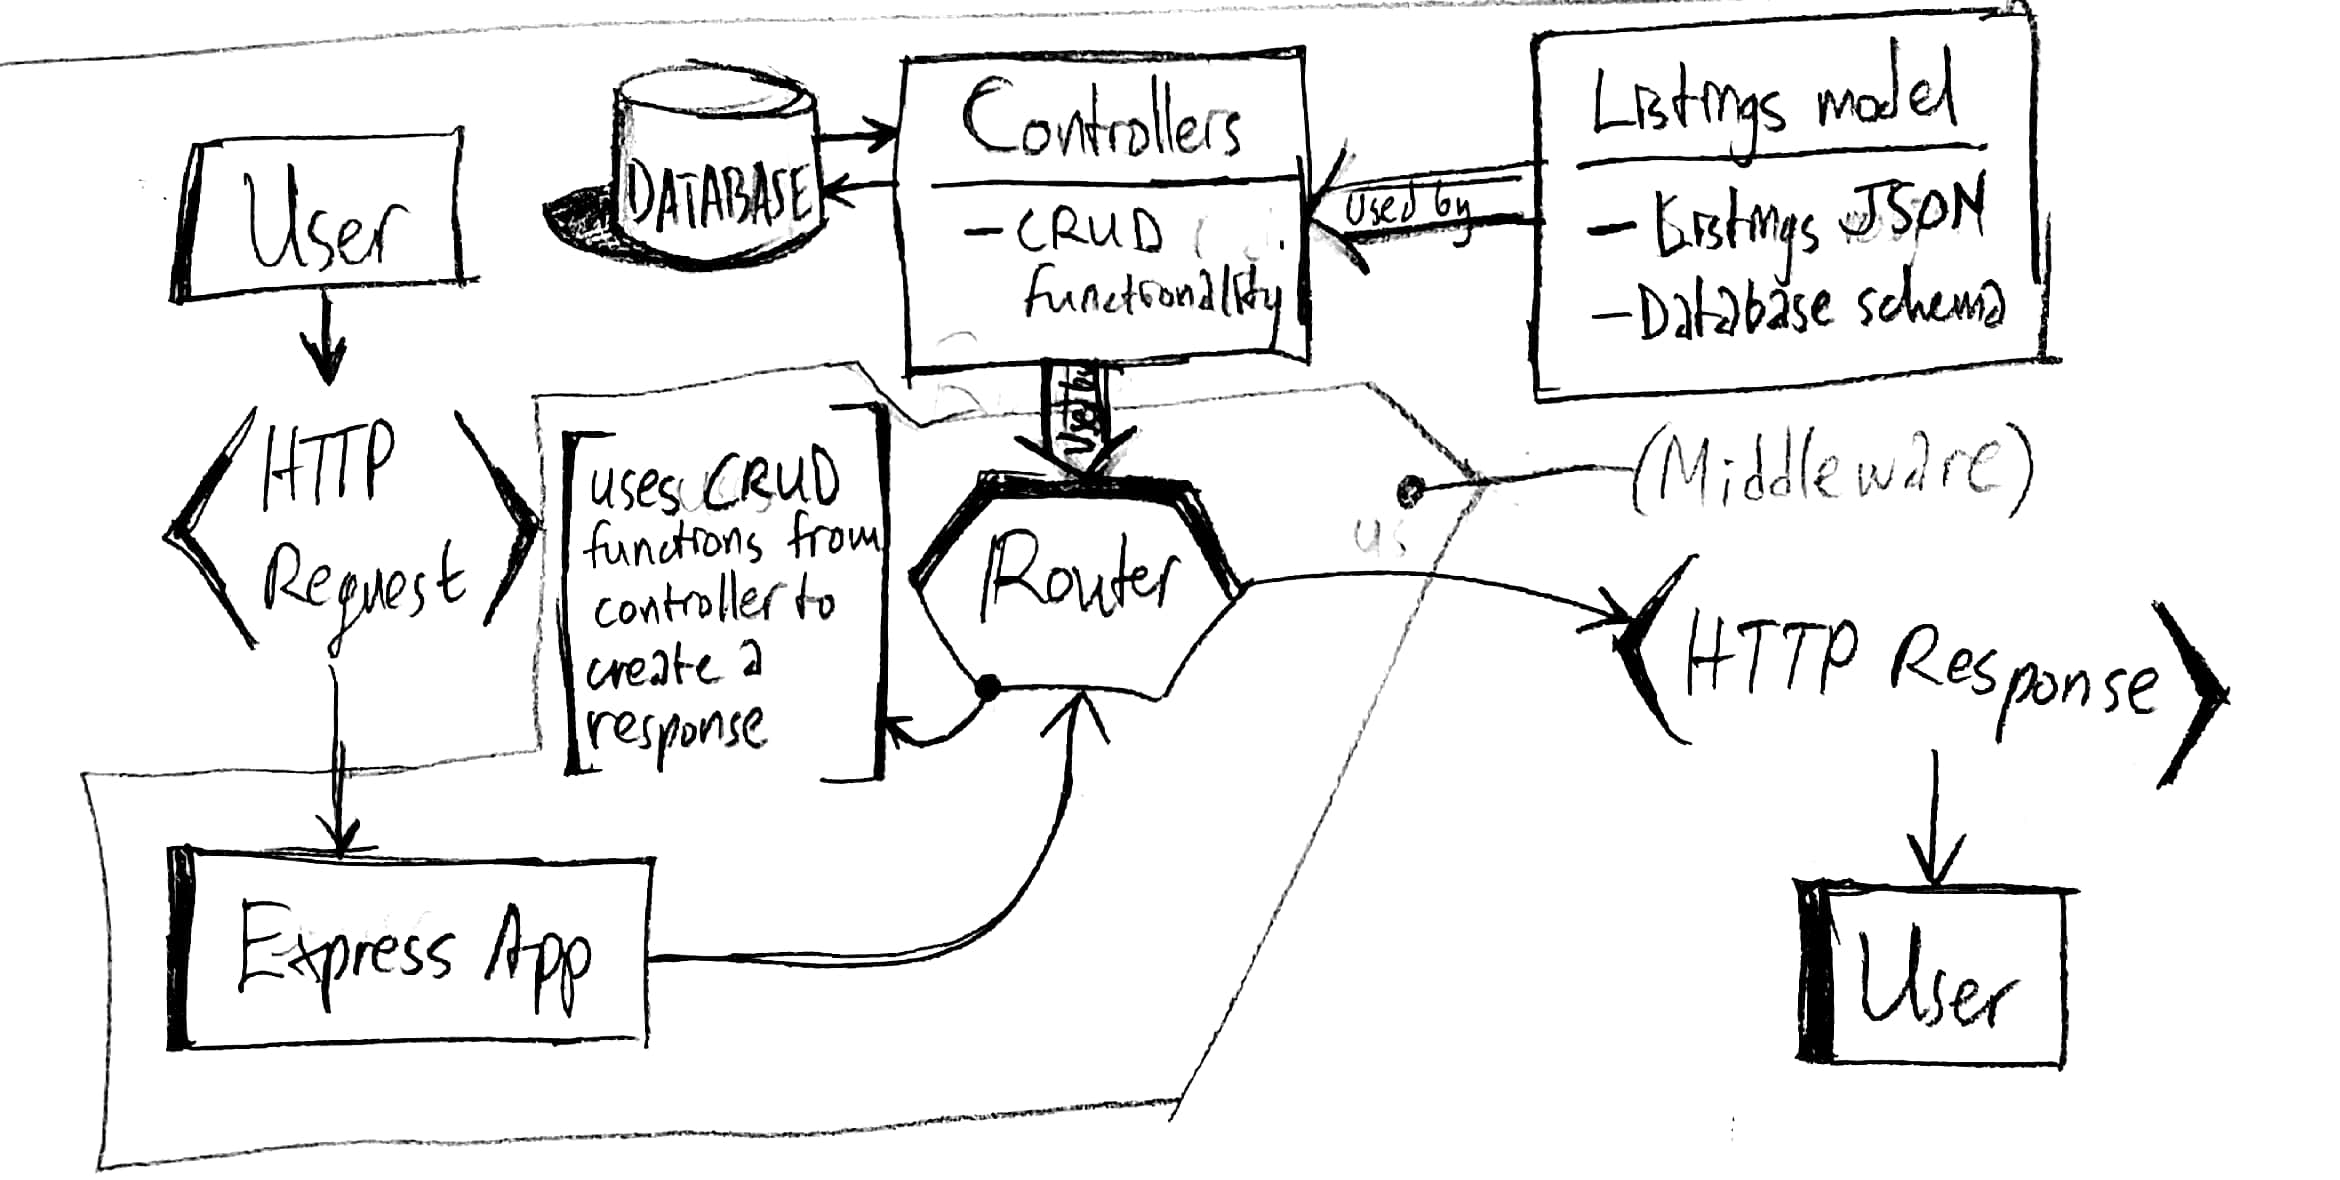 User
DATABASE
Controllers
- CRUD
functionality
used by
Listings model
- Listings JSON
- Database schema
HTTP
Request
uses CRUD
functions from
controller to
create a
response
Used by
Router
(Middleware)
us
HTTP Response
Express App
User